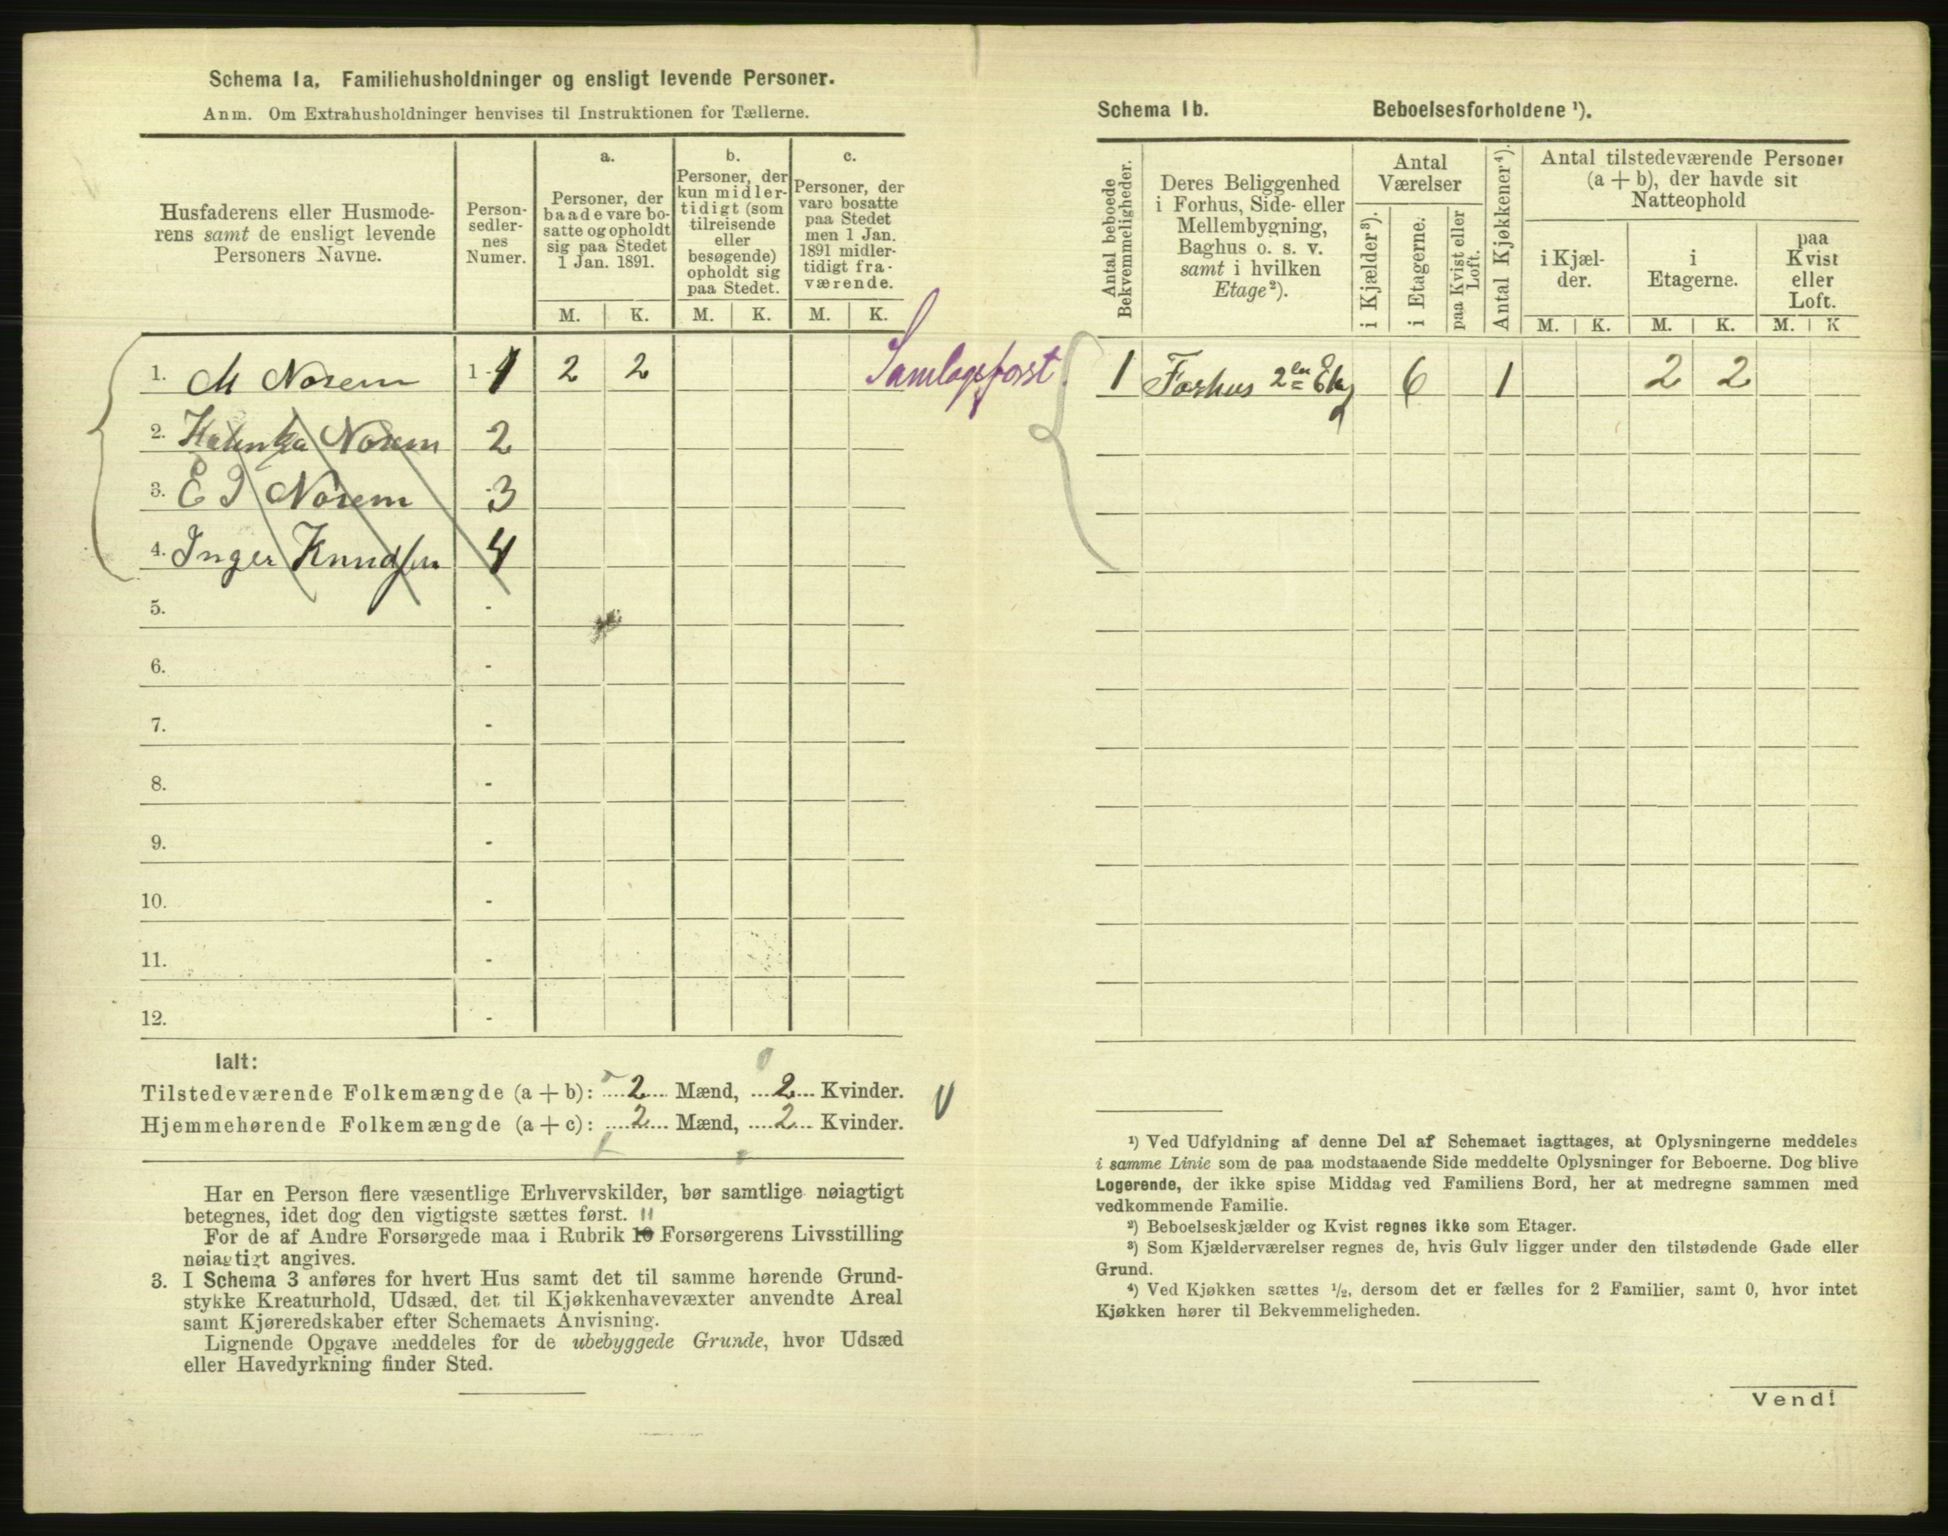 Schema 1a. Familiehusholdninger og ensligt levende Personer.
Anm. Om Extrahusholdninger henvises til Instruktionen for Tællerne.
Husfaderens eller Husmode-
rens samt de ensligt levende
Personers Navne.
Person-
sedler-
nes
Numer.
a.
Personer, der
baade vare bo-
satte og opholdt
sig paa Stedet
1 Jan. 1891.
b.
Personer, der
kun midler-
tidigt (som
tilreisende
eller
besøgende)
opholdt sig
paa Stedet.
c.
Personer, der
vare bosatte
paa Stedet
men 1 Jan.
1891 midler-
tidigt fra-
værende.
M. K. M. K. M. K.
1. M Norem 1 - 1 2 2
2. Norem 2
3. E I Norem 3
4. Inger Knudsen 4
5. -
6. -
7. -
8. -
9. -
10. -
11. -
12. -
Ialt:
Tilstedeværende Folkemængde (a + b): 2 Mænd, 2 Kvinder.
Hjemmehørende Folkemængde (a + c): 2 Mænd, 2 Kvinder.
Har en Person flere væsentlige Erhvervskilder, bør samtlige nøiagtigt
betegnes, idet dog den vigtigste sættes først. 11
For de af Andre Forsørgede maa i Rubrik 10 Forsørgerens Livsstilling
nøiagtigt angives.
3. I Schema 3 anføres for hvert Hus samt det til samme hørende Grund-
stykke Kreaturhold, Udsæd, det til Kjøkkenhavevæxter anvendte Areal
samt Kjøreredskaber efter Schemaets Anvisning.
Lignende Opgave meddeles for de ubebyggede Grunde, hvor Udsæd
eller Havedyrkning finder Sted.
Schema 1b. Beboelsesforholdene ¹).
Antal beboede
Bekvemmeligheder.
Deres Beliggenhed
i Forhus, Side- eller
Mellembygning,
Baghus o. s. v.
samt i hvilken
Etage²).
Antal
Værelser
i Kjælder³).
i Etagerne.
paa Kvist eller
Loft.
Antal Kjøkkener⁴).
Antal tilstedeværende Personer
(a + b), der havde sit
Natteophold
i Kjæl-
der.
i
Etagerne.
paa
Kvist
eller
Loft.
M. K. M. K. M. K
1 Forhus 2den Etg 6 1 2 2
¹) Ved Udfyldning af denne Del af Schemaet iagttages, at Oplysningerne meddeles
i samme Linie som de paa modstaaende Side meddelte Oplysninger for Beboerne. Dog blive
Logerende, der ikke spise Middag ved Familiens Bord, her at medregne sammen med
vedkommende Familie.
²) Beboelseskjælder og Kvist regnes ikke som Etager.
³) Som Kjælderværelser regnes de, hvis Gulv ligger under den tilstødende Gade eller
Grund.
⁴) Ved Kjøkken sættes ½, dersom det er fælles for 2 Familier, samt 0, hvor intet
Kjøkken hører til Bekvemmeligheden.
Vend!